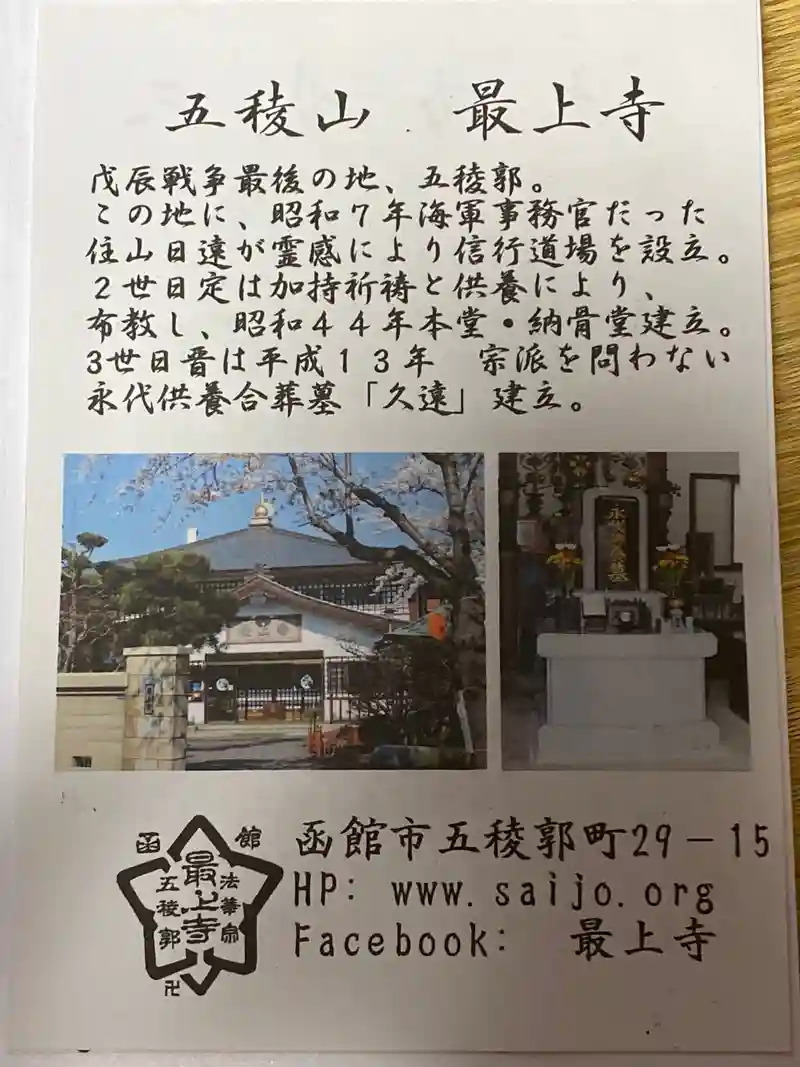 五稜山　最上寺
戊辰戦争最後の地、五稜郭。
この地に、昭和７年海軍事務官だった
住山日遠が霊感により信行道場を設立。
２世日定は加持祈祷と供養により、
布教し、昭和４４年本堂・納骨堂建立。
3世日晋は平成１３年　宗派を問わない
永代供養合葬墓「久遠」建立。
函館
法華宗
最上寺
五稜郭
卍
函館市五稜郭町29－15
HP: www.saijo.org
Facebook:　最上寺